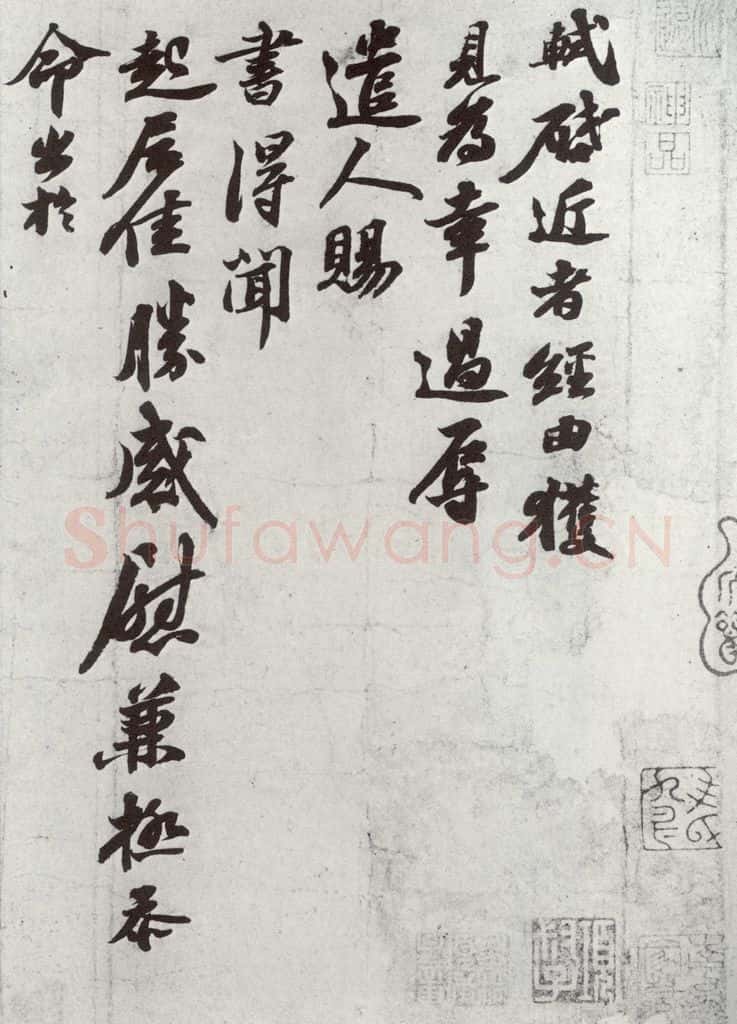 軾啓近者經由獲
見爲幸過辱
遣人賜
書得聞
起居佳勝感慰兼極忝
命出於
神品
Shufawang.CN